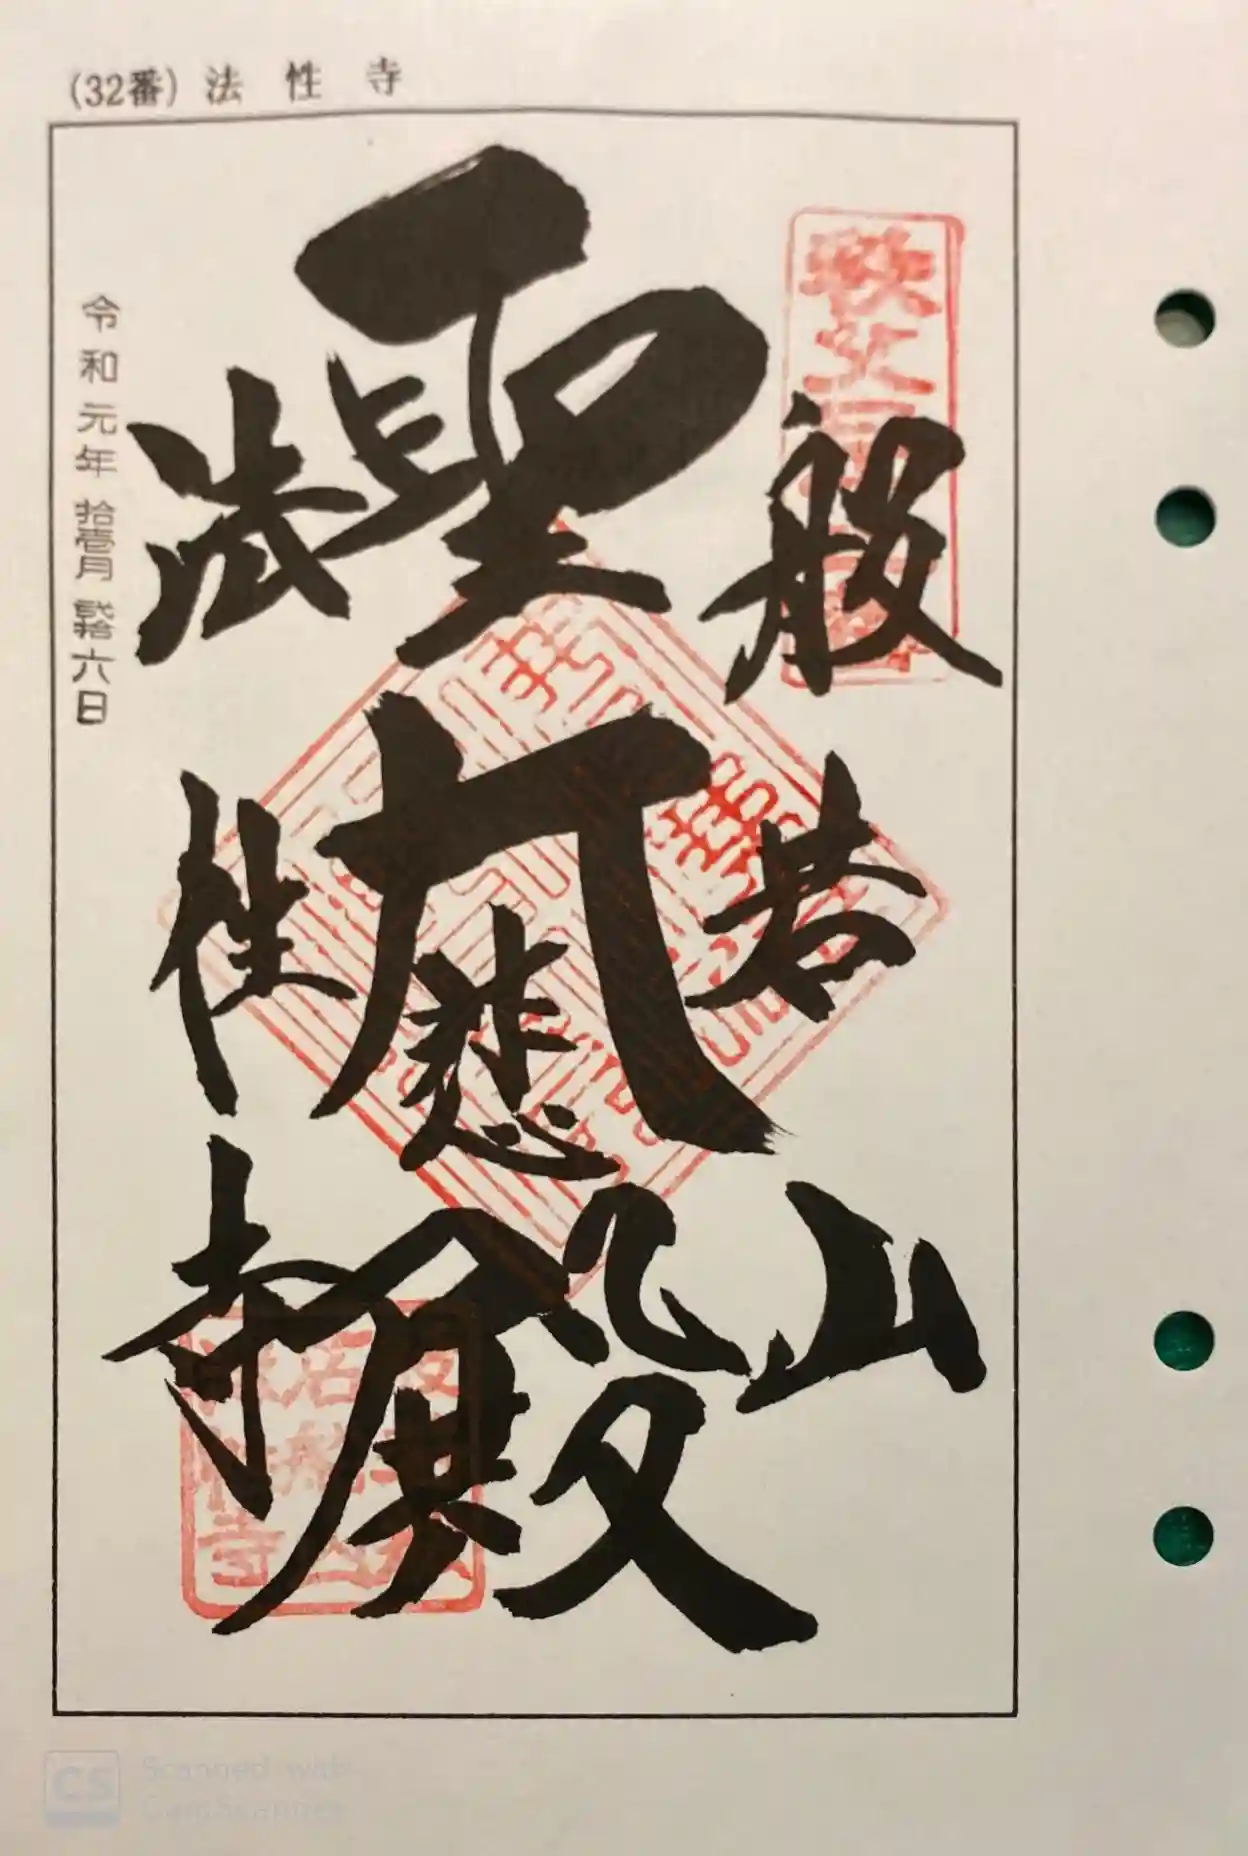 (32番) 法性寺
般若山
聖大悲殿
法性寺
令和元年拾壹月貳拾六日
秩父
Scanned with
CamScanner
CS